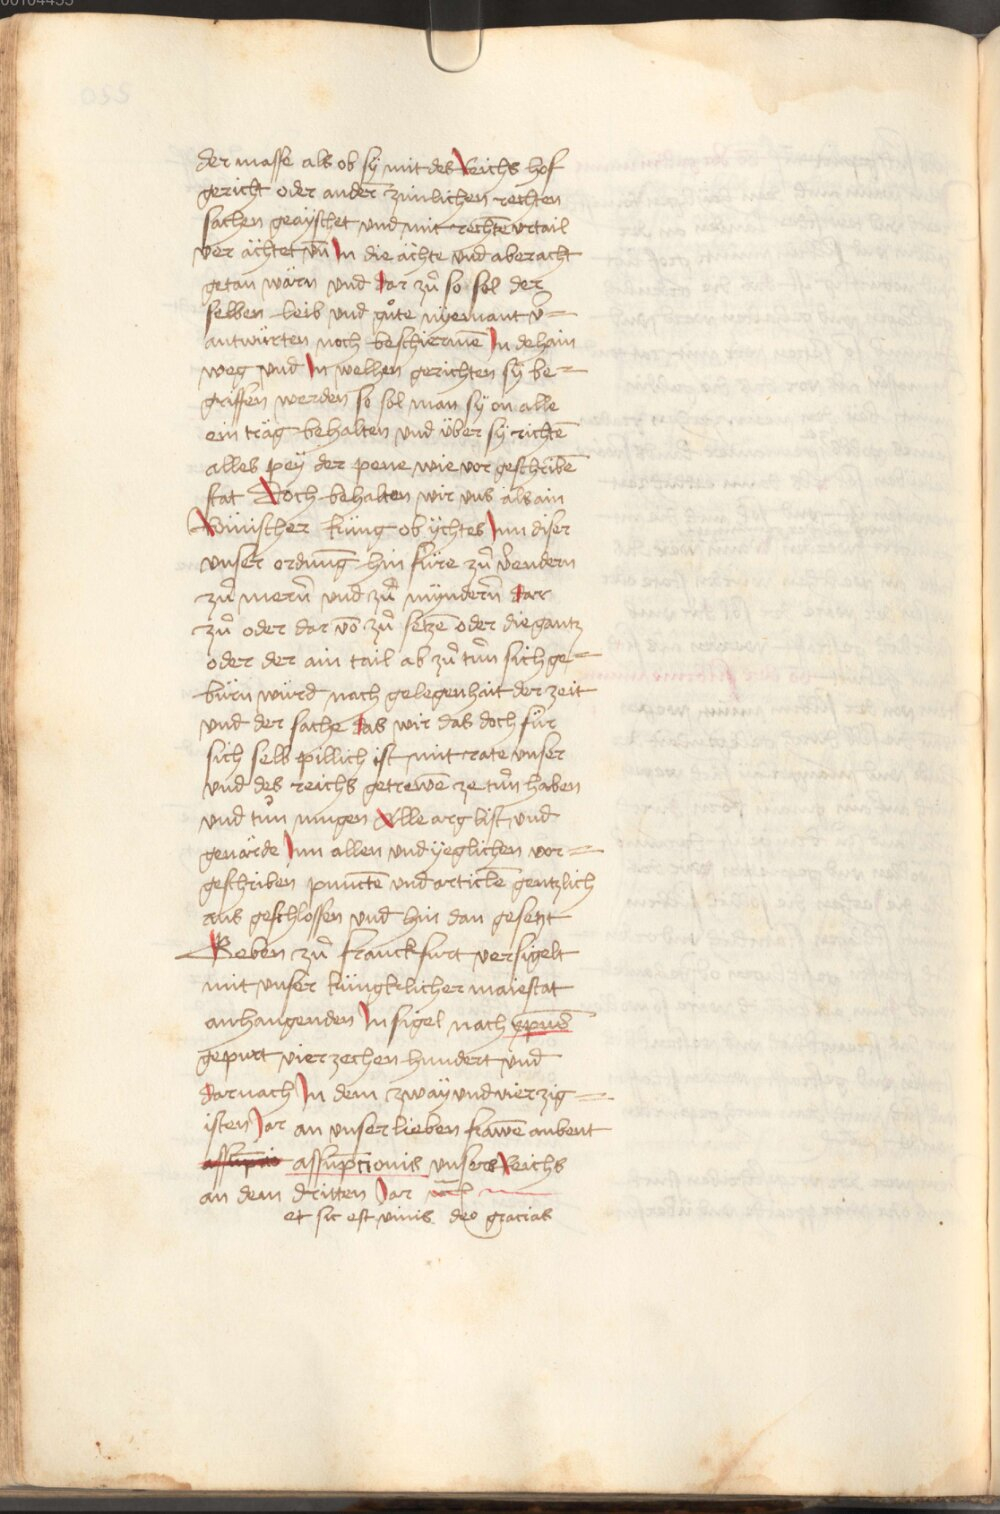 der masse als ob sÿ mit des Reichs hof
gericht oder anderñ zimlichen rechten
sachen geaÿschet vnd mit rechtẽ vrtail
ver ächtet vñ In die ächte vnd aberacht
getan wärn vnd dar zů so sol der
selben leib vnd gůte nÿemant v̾=
antwürten noch beschiermẽ In dehain
weg vnd In welhen gerichten sÿ be=
griffen werden so sol man sÿ on alle
ein träg behalten vnd über sÿ richtẽ
alles peÿ der pene wie vor geschribẽ
stat Doch behalten wir vns als ain
Römischer küng ob ÿchtes Inn diser
vnser ordnung hin füre zů endern
zů merñ vnd zů mÿndern̄ dar
zů oder dar võ zů setzẽ oder die gantz
oder der ain tail ab zů tůn sich ge=
bürn würd nach gelegenhait der zeit
vnd der sache das wir das doch für
sich selb pillich ist mit rate vnser
vnd des reichs getrewẽ ze tůn haben
vnd tůn mugen Alle arg list vnd
geuärde Inn allen vnd ÿeglichen vor=
geschriben punctẽ vnd articlẽ gentzlich
aus geschlossen vnd hin dan gesetzt
Geben zů franckfurt versigelt
mit vnser küngklicher maiestat
anhangenden Insigel nach xp̄us
gepurt vierzechen hundert vnd
darnach In dem zwaÿ vnd vierzig=
isten Jar an vnser lieben frawẽ aubent
assūptio assūpcionis vnsers Reichs
an dem dritten Jar
et sic est vinis deo gracias